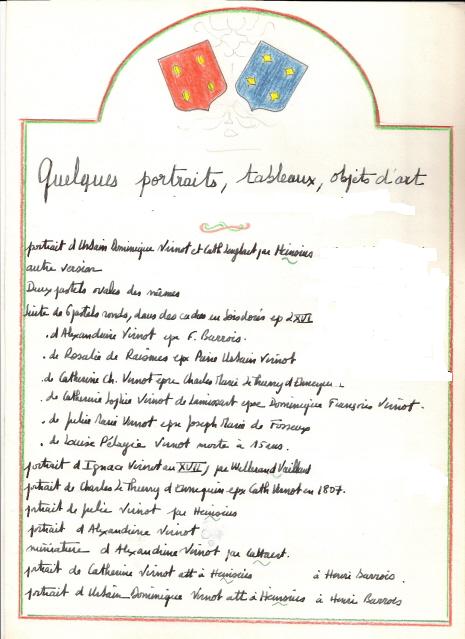 Quelques portraits, tableaux, objets d'art
portrait d'Urbain Dominique Virnot et Cath par Heinsius
autre version
Deux pastels ovales des mêmes
Suite de 6 pastels ronds, dans des cadres en bois dorés ep LXVI
. d'Alexandrine Virnot epx F. Barrois.
. de Rosalie de Raismes epx Pierre Urbain Virnot
. de Catherine Ch. Virnot epse Charles Marie Le Thierry d'Ennequin
. de Catherine Sophie Virnot de Lamissart epse Dominique François Virnot.
. de Julie Marie Virnot epse Joseph Marie de Fosseux
. de Louise Pélagie Virnot morte à 15 ans.
portrait d'Ignace Virnot au XVII, par Wallerand Vaillant
portrait de Charles Le Thierry d'Ennequin epx Cath Virnot en 1807.
portrait de Julie Virnot par Heinsius
portrait d'Alexandrine Virnot
miniature d'Alexandrine Virnot par
portrait de Catherine Virnot att à Heinsius à Henri Barrois.
portrait d'Urbain Dominique Virnot att à Heinsius à Henri Barrois